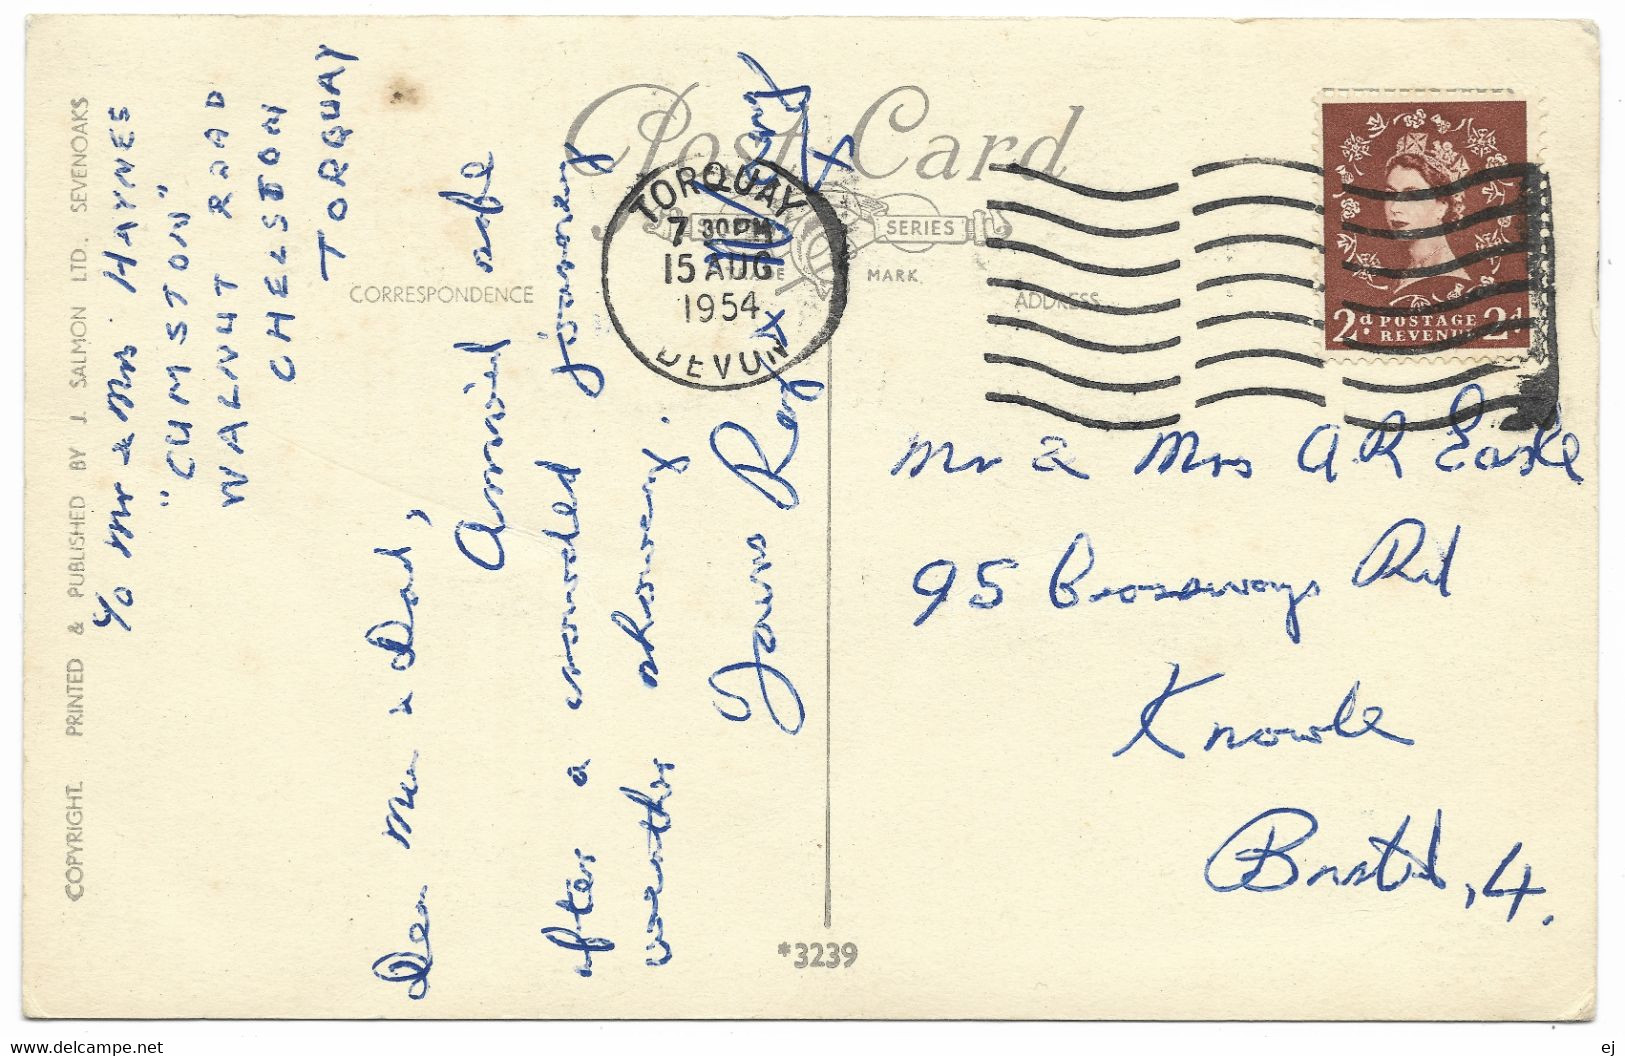 COPYRIGHT. PRINTED & PUBLISHED BY J. SALMON LTD. SEVENOAKS
Post Card
SERIES
MARK
CORRESPONDENCE
ADDRESS
TORQUAY
7 30 PM
15 AUG
1954
DEVON
2d POSTAGE 2d
REVENUE
c/o Mr & Mrs HAYNES
"CUMSTON"
WALNUT ROAD
CHELSTON
TORQUAY
Dear Mum & Dad,
Arrived safe
after a crowded journey
weather showery.
Yours Roy
x
x
Mr & Mrs A.R
95 Crossways Rd
Knowle
Bristol, 4.
*3239
www.delcampe.net
ej